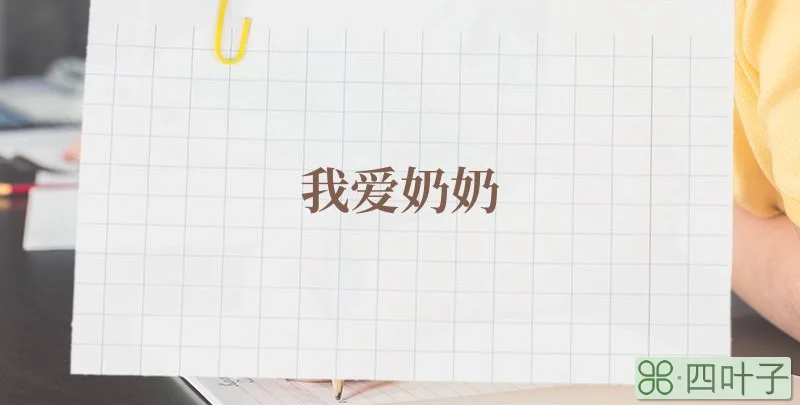 我爱奶奶
四叶子